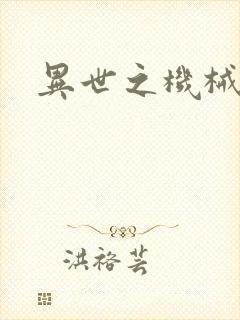 異世之機械
洪裕芸